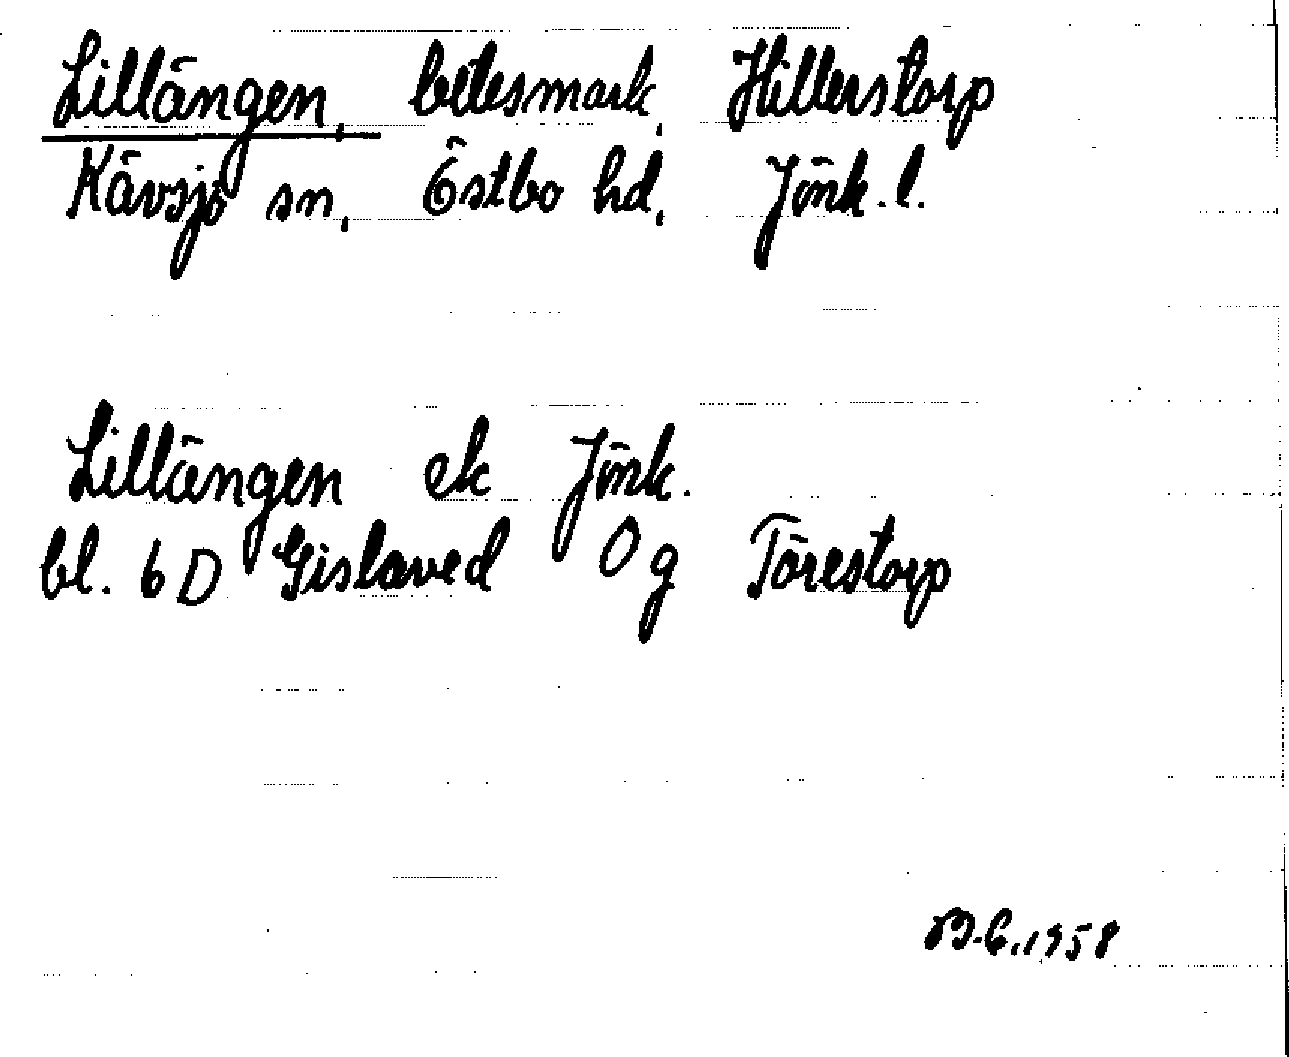 Lillängen, betesmark, Hillerstorp
Kävsjö sn, Östbo hd, Jönk. l.
Lillängen ek Jönk.
bl. 6 D Gislaved 0 g Törestorp
B.E. 1958